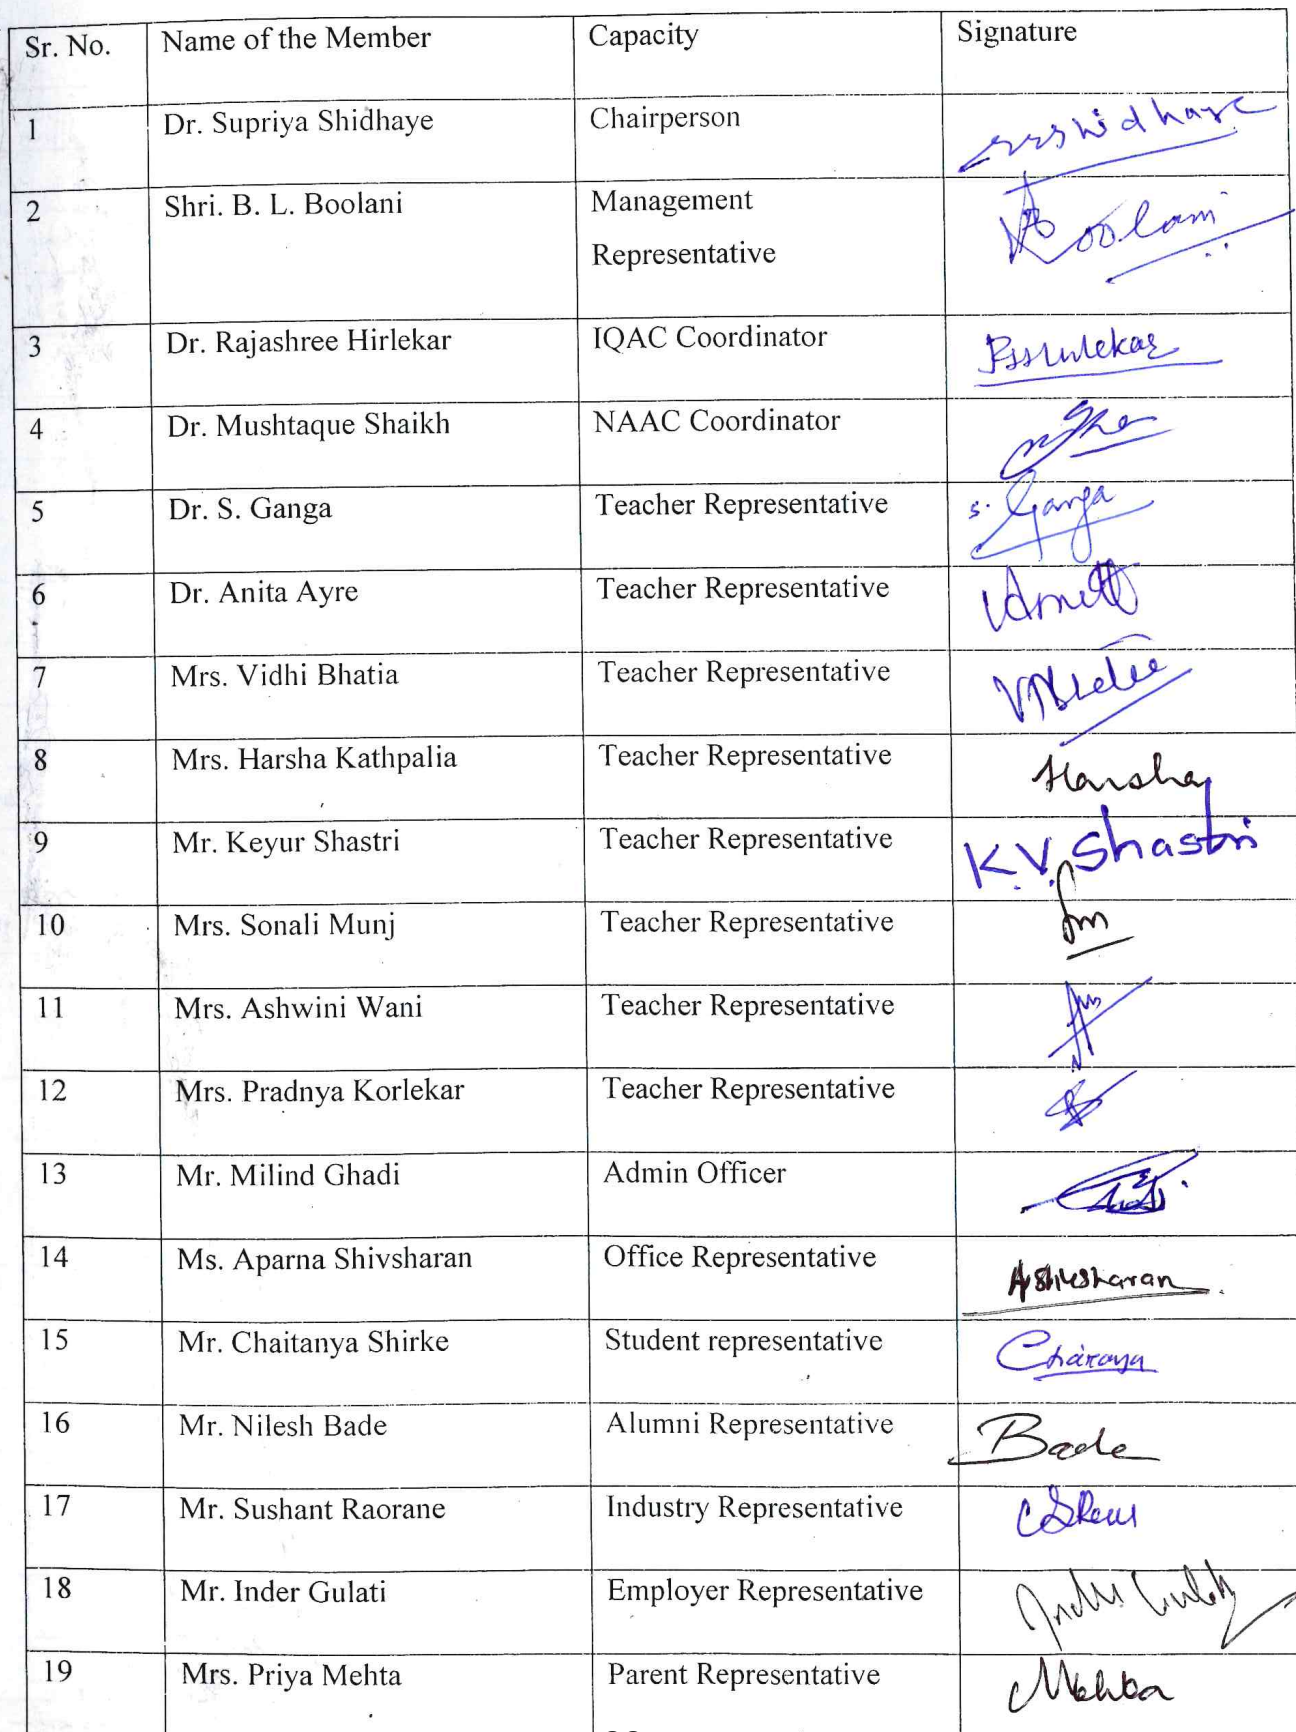 Sr. No. Name of the Member Capacity Signature
1 Dr. Supriya Shidhaye Chairperson
2 Shri. B. L. Boolani Management
Representative Boolani
3 Dr. Rajashree Hirlekar IQAC Coordinator
4 Dr. Mushtaque Shaikh NAAC Coordinator
5 Dr. S. Ganga Teacher Representative S. Ganga
6 Dr. Anita Ayre Teacher Representative
7 Mrs. Vidhi Bhatia Teacher Representative
8 Mrs. Harsha Kathpalia Teacher Representative Harsha
9 Mr. Keyur Shastri Teacher Representative K.V. Shastri
10 Mrs. Sonali Munj Teacher Representative
11 Mrs. Ashwini Wani Teacher Representative
12 Mrs. Pradnya Korlekar Teacher Representative
13 Mr. Milind Ghadi Admin Officer
14 Ms. Aparna Shivsharan Office Representative
15 Mr. Chaitanya Shirke Student representative
16 Mr. Nilesh Bade Alumni Representative Bade
17 Mr. Sushant Raorane Industry Representative
18 Mr. Inder Gulati Employer Representative
19 Mrs. Priya Mehta Parent Representative Mehta